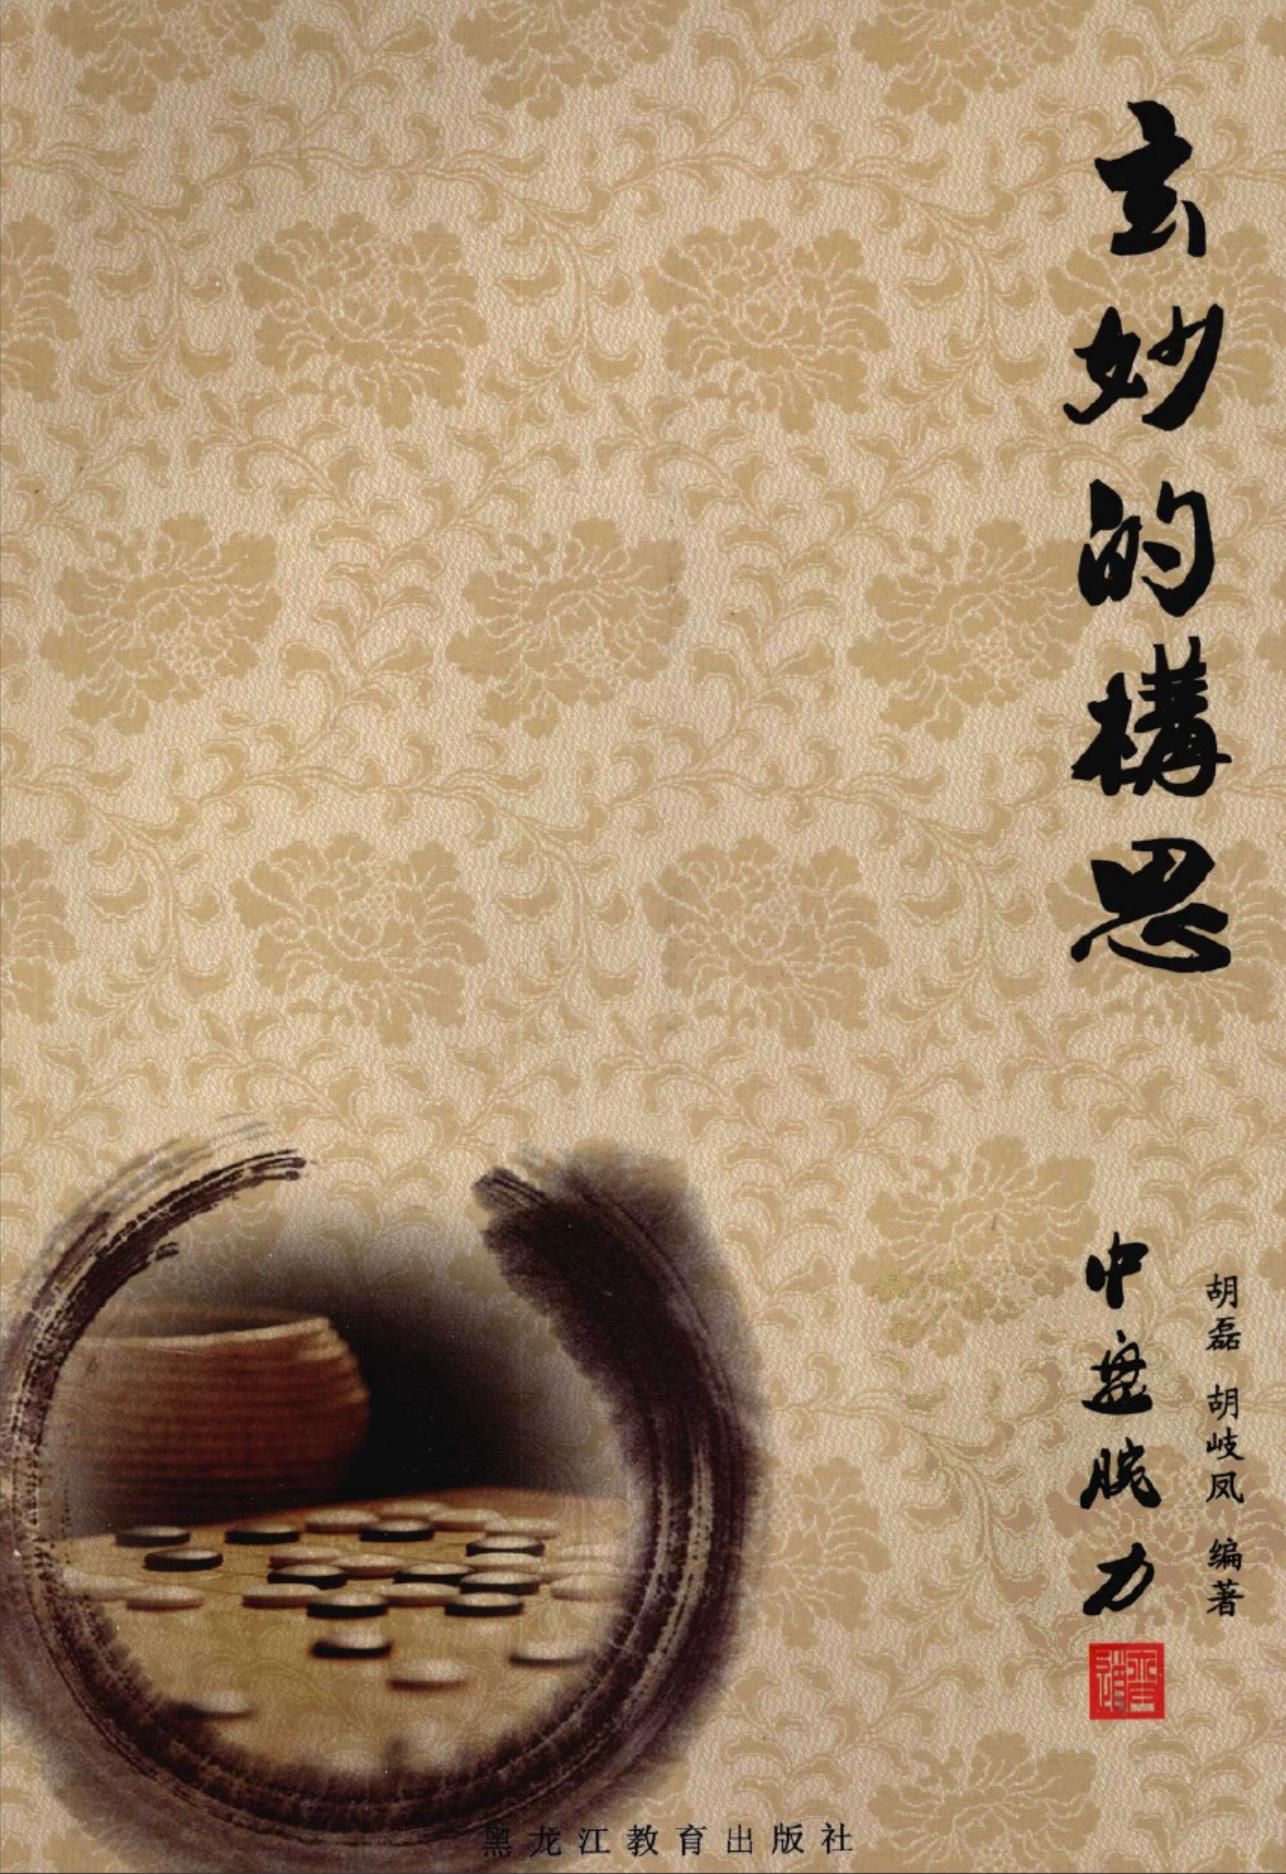 玄妙的構思
胡磊 胡岐凤 编著
中盘腕力
黑龙江教育出版社